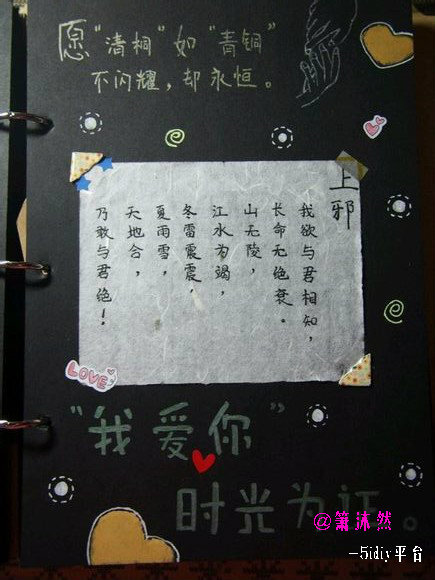 愿“清桐”如“青铜”
不闪耀，却永恒。
上邪
我欲与君相知，
长命无绝衰。
山无陵，
江水为竭，
冬雷震震，
夏雨雪，
天地合，
乃敢与君绝！
LOVE
“我爱你”
时光为证。
@箫沐然
-5idiy平台